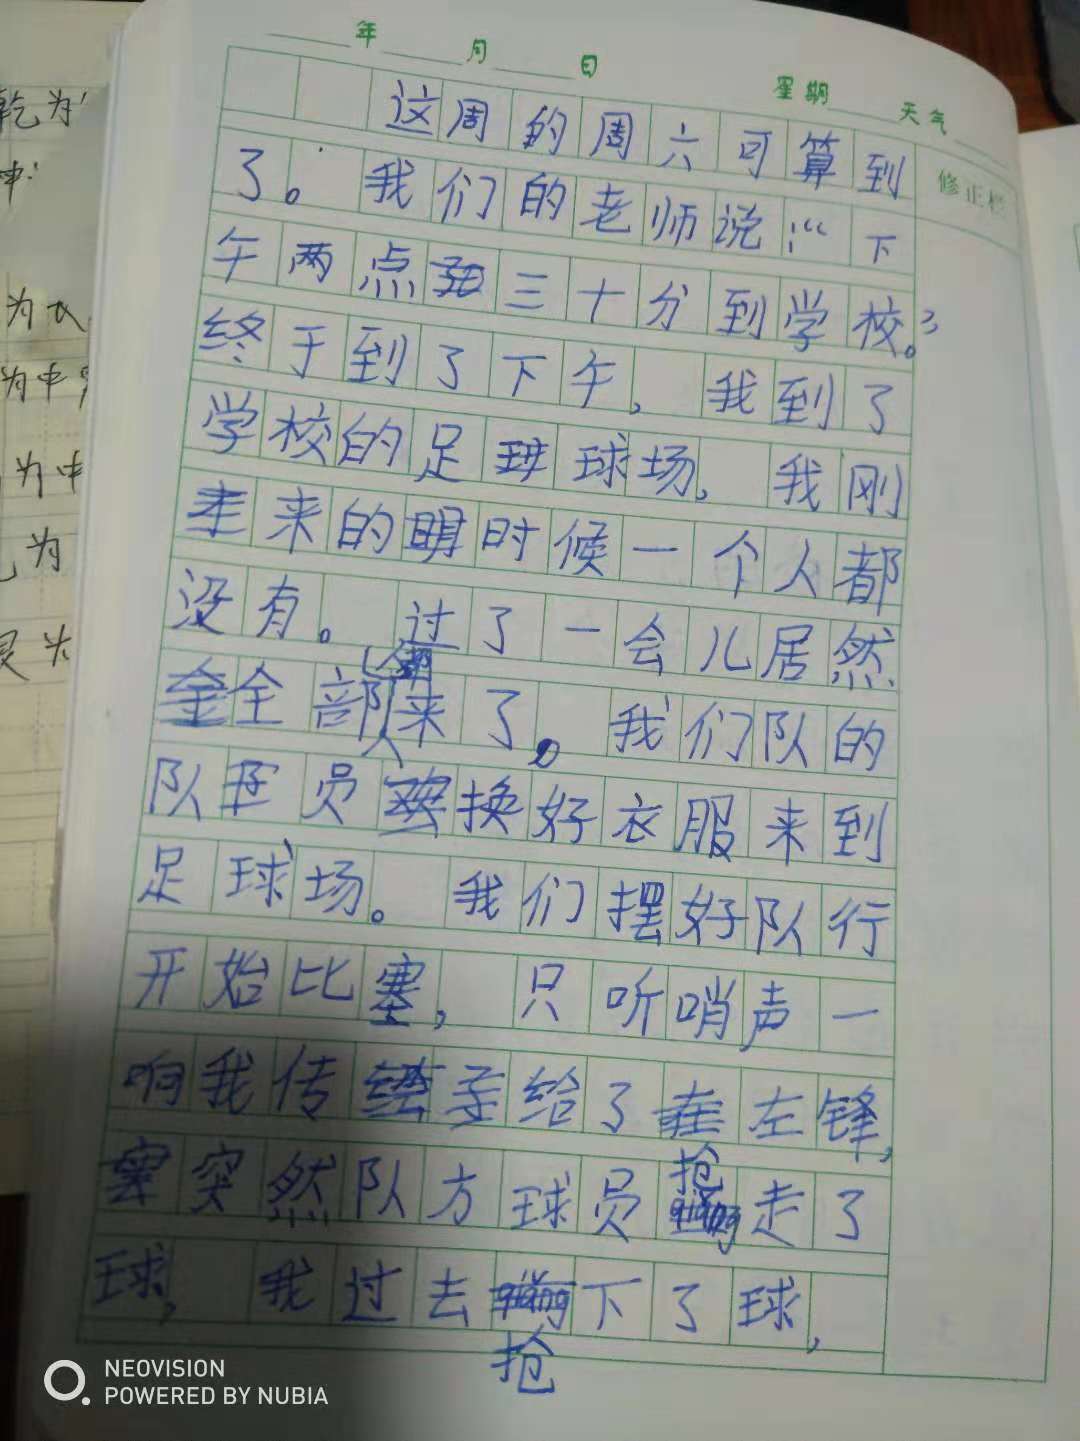 年 月 日 星期 天气
修正栏
这周的周六可算到
了。我们的老师说:“下
午两点三十分到学校。”
终于到了下午,我到了
学校的足球场,我刚
来的时候一个人都
没有。过了一会儿居然
全部人都来了。我们队的
队员换好衣服来到
足球场。我们摆好队行
开始比塞,只听哨声一
响我传给了左锋,
突然队方球员抢走了
球,我过去抢下了球,
乾为
为中
为中
为
NEOVISION
POWERED BY NUBIA